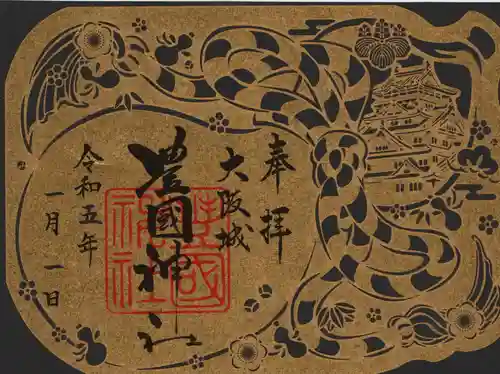 奉拝
大阪城
豊國神社
豊國
神社
令和五年
一月一日